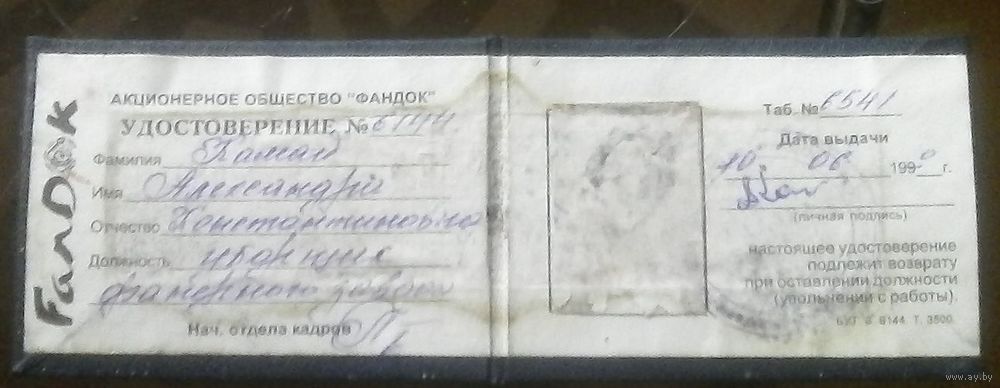 FanDOK
АКЦИОНЕРНОЕ ОБЩЕСТВО "ФАНДОК"
УДОСТОВЕРЕНИЕ №
Фамилия
Имя Александр
Отчество Константинович
Должность
фанерного завода
Нач. отдела кадров
Таб. № 6541
Дата выдачи
10. 06. 199 г.
(личная подпись)
настоящее удостоверение
подлежит возврату
при оставлении должности
(увольнении с работы).
Т. 3500.
www.ay.by